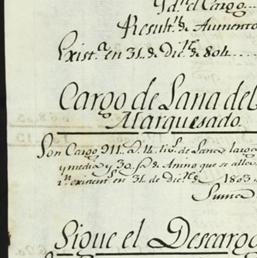 Yd. el Cargo
Result. de Aumento
Exist. en 31 de Dic.e de 804
Cargo de Lana del
Marquesado
Son Cargo 911. a. 14 lib.s de Lana larga
y media y 30. de Anino que se
exixent.s en 31 de Dic.e de 1803
Suma
Sigue el Descargo